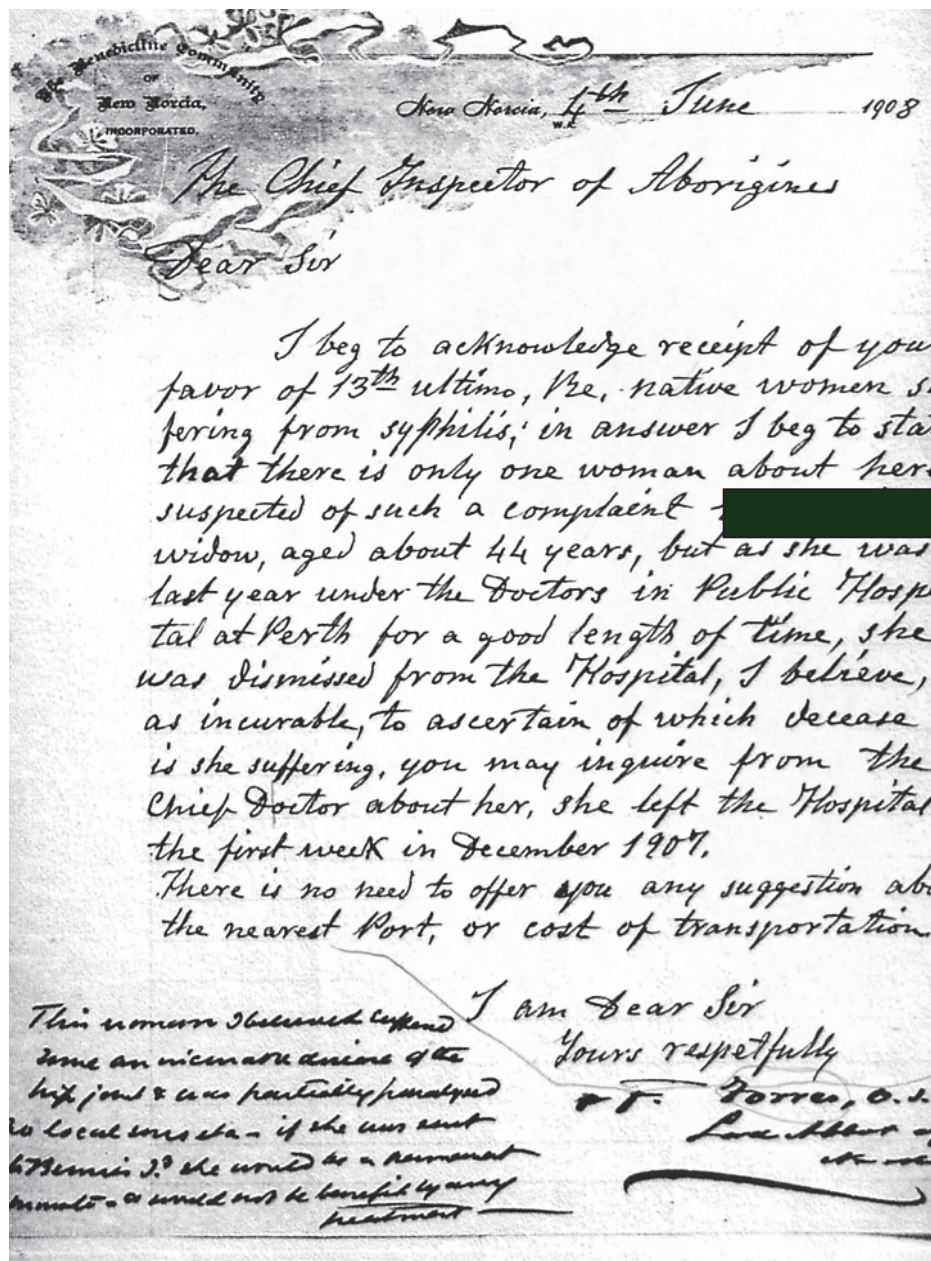 The Benedictine Community
OF
New Norcia,
INCORPORATED.
New Norcia, 4th June 1908
W.A.
The Chief Inspector of Aborigines
Dear Sir
I beg to acknowledge receipt of you
favor of 13th ultimo, Re, native women s
fering from syphilis; in answer I beg to sta
that there is only one woman about her
suspected of such a complaint
widow, aged about 44 years, but as she was
last year under the Doctors in Public Hosp
tal at Perth for a good length of time, she
was dismissed from the Hospital, I believe,
as incurable, to ascertain of which decease
is she suffering, you may inquire from the
Chief Doctor about her, she left the Hospital
the first week in December 1907.
There is no need to offer you any suggestion abo
the nearest Port, or cost of transportation
I am Dear Sir
Yours respetfully
Torres, O.S.
Abbot
This woman I believed
some an incurable disease of the
hip joint & was partially paralysed
local - if she was sent
Bernier Id she would be a permanent
inmate - & would not be benefit by any
treatment